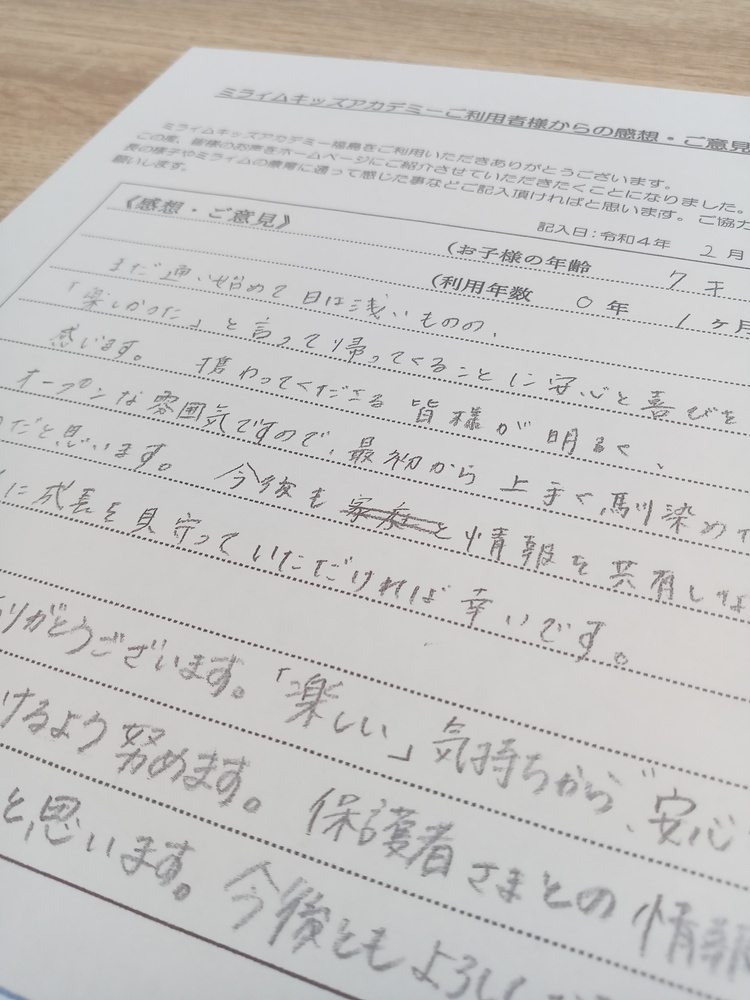 ミライムキッズアカデミーご利用者様からの感想・ご意見
ミライムキッズアカデミー福島をご利用いただきありがとうございます。
この度、皆様のお声をホームページにご紹介させていただきたくことになりました。
長の様子やミライムの療育に通って感じた事などご記入頂ければと思います。ご協力
願いします。
記入日:令和4年 2月
《感想・ご意見》
(お子様の年齢 7才
(利用年数 0年 1ヶ月
まだ通い始めて日は浅いものの、
「楽しかった」と言って帰ってくることに安心と喜びを
感じます。 携わってくださる皆様が明るく、
オープンな雰囲気ですので、最初から上手く馴染めた
のだと思います。 今後も家庭と情報を共有しな
に成長を見守っていただければ幸いです。
りがとうございます。「楽しい」気持ちから、安心
けるよう努めます。 保護者さまとの情報
と思います。今後ともよろし